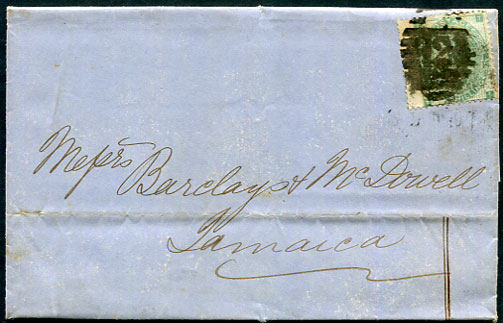 Messrs
Barclays & McDowell
Jamaica